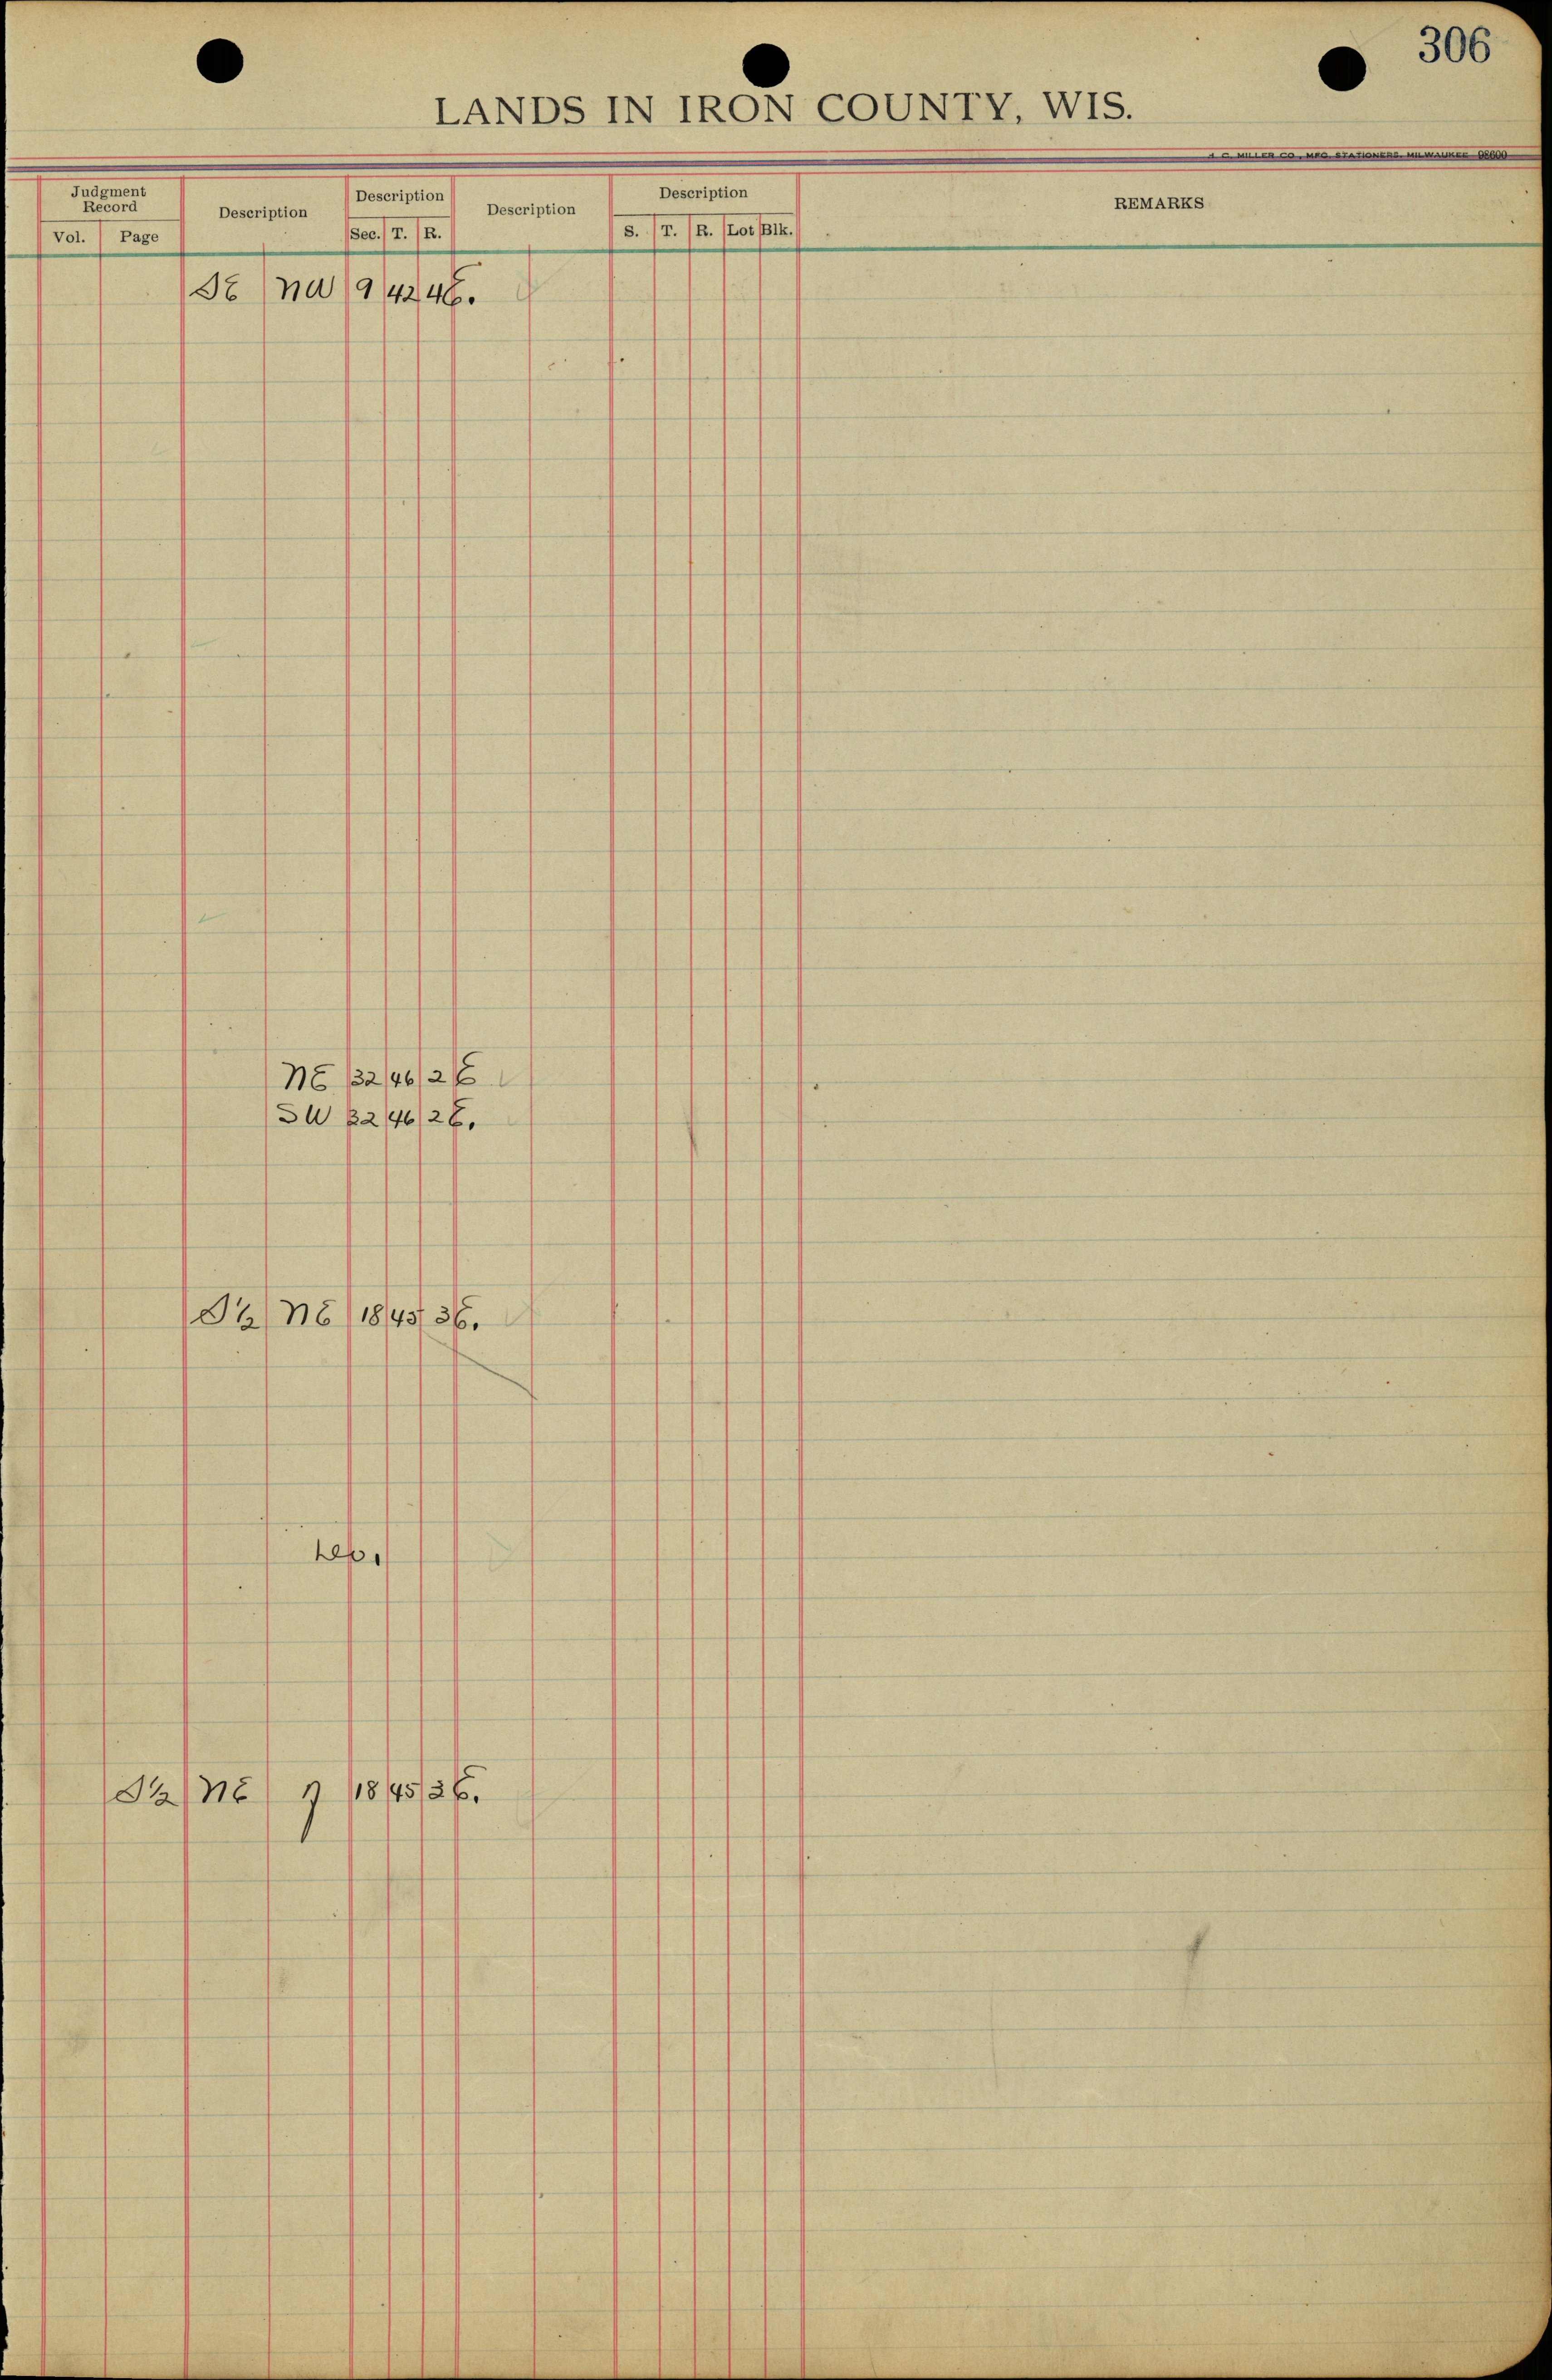 306
LANDS IN IRON COUNTY, WIS.
H. C. MILLER CO., MFG. STATIONERS, MILWAUKEE 98600
Judgment Record Description Description Description Description REMARKS
Vol. Page Sec. T. R. S. T. R. Lot Blk.
SE NW 9 42 4E.
NE 32 46 2E
SW 32 46 2E.
S½ NE 18 45 3E.
S½ NE 18 45 3E.